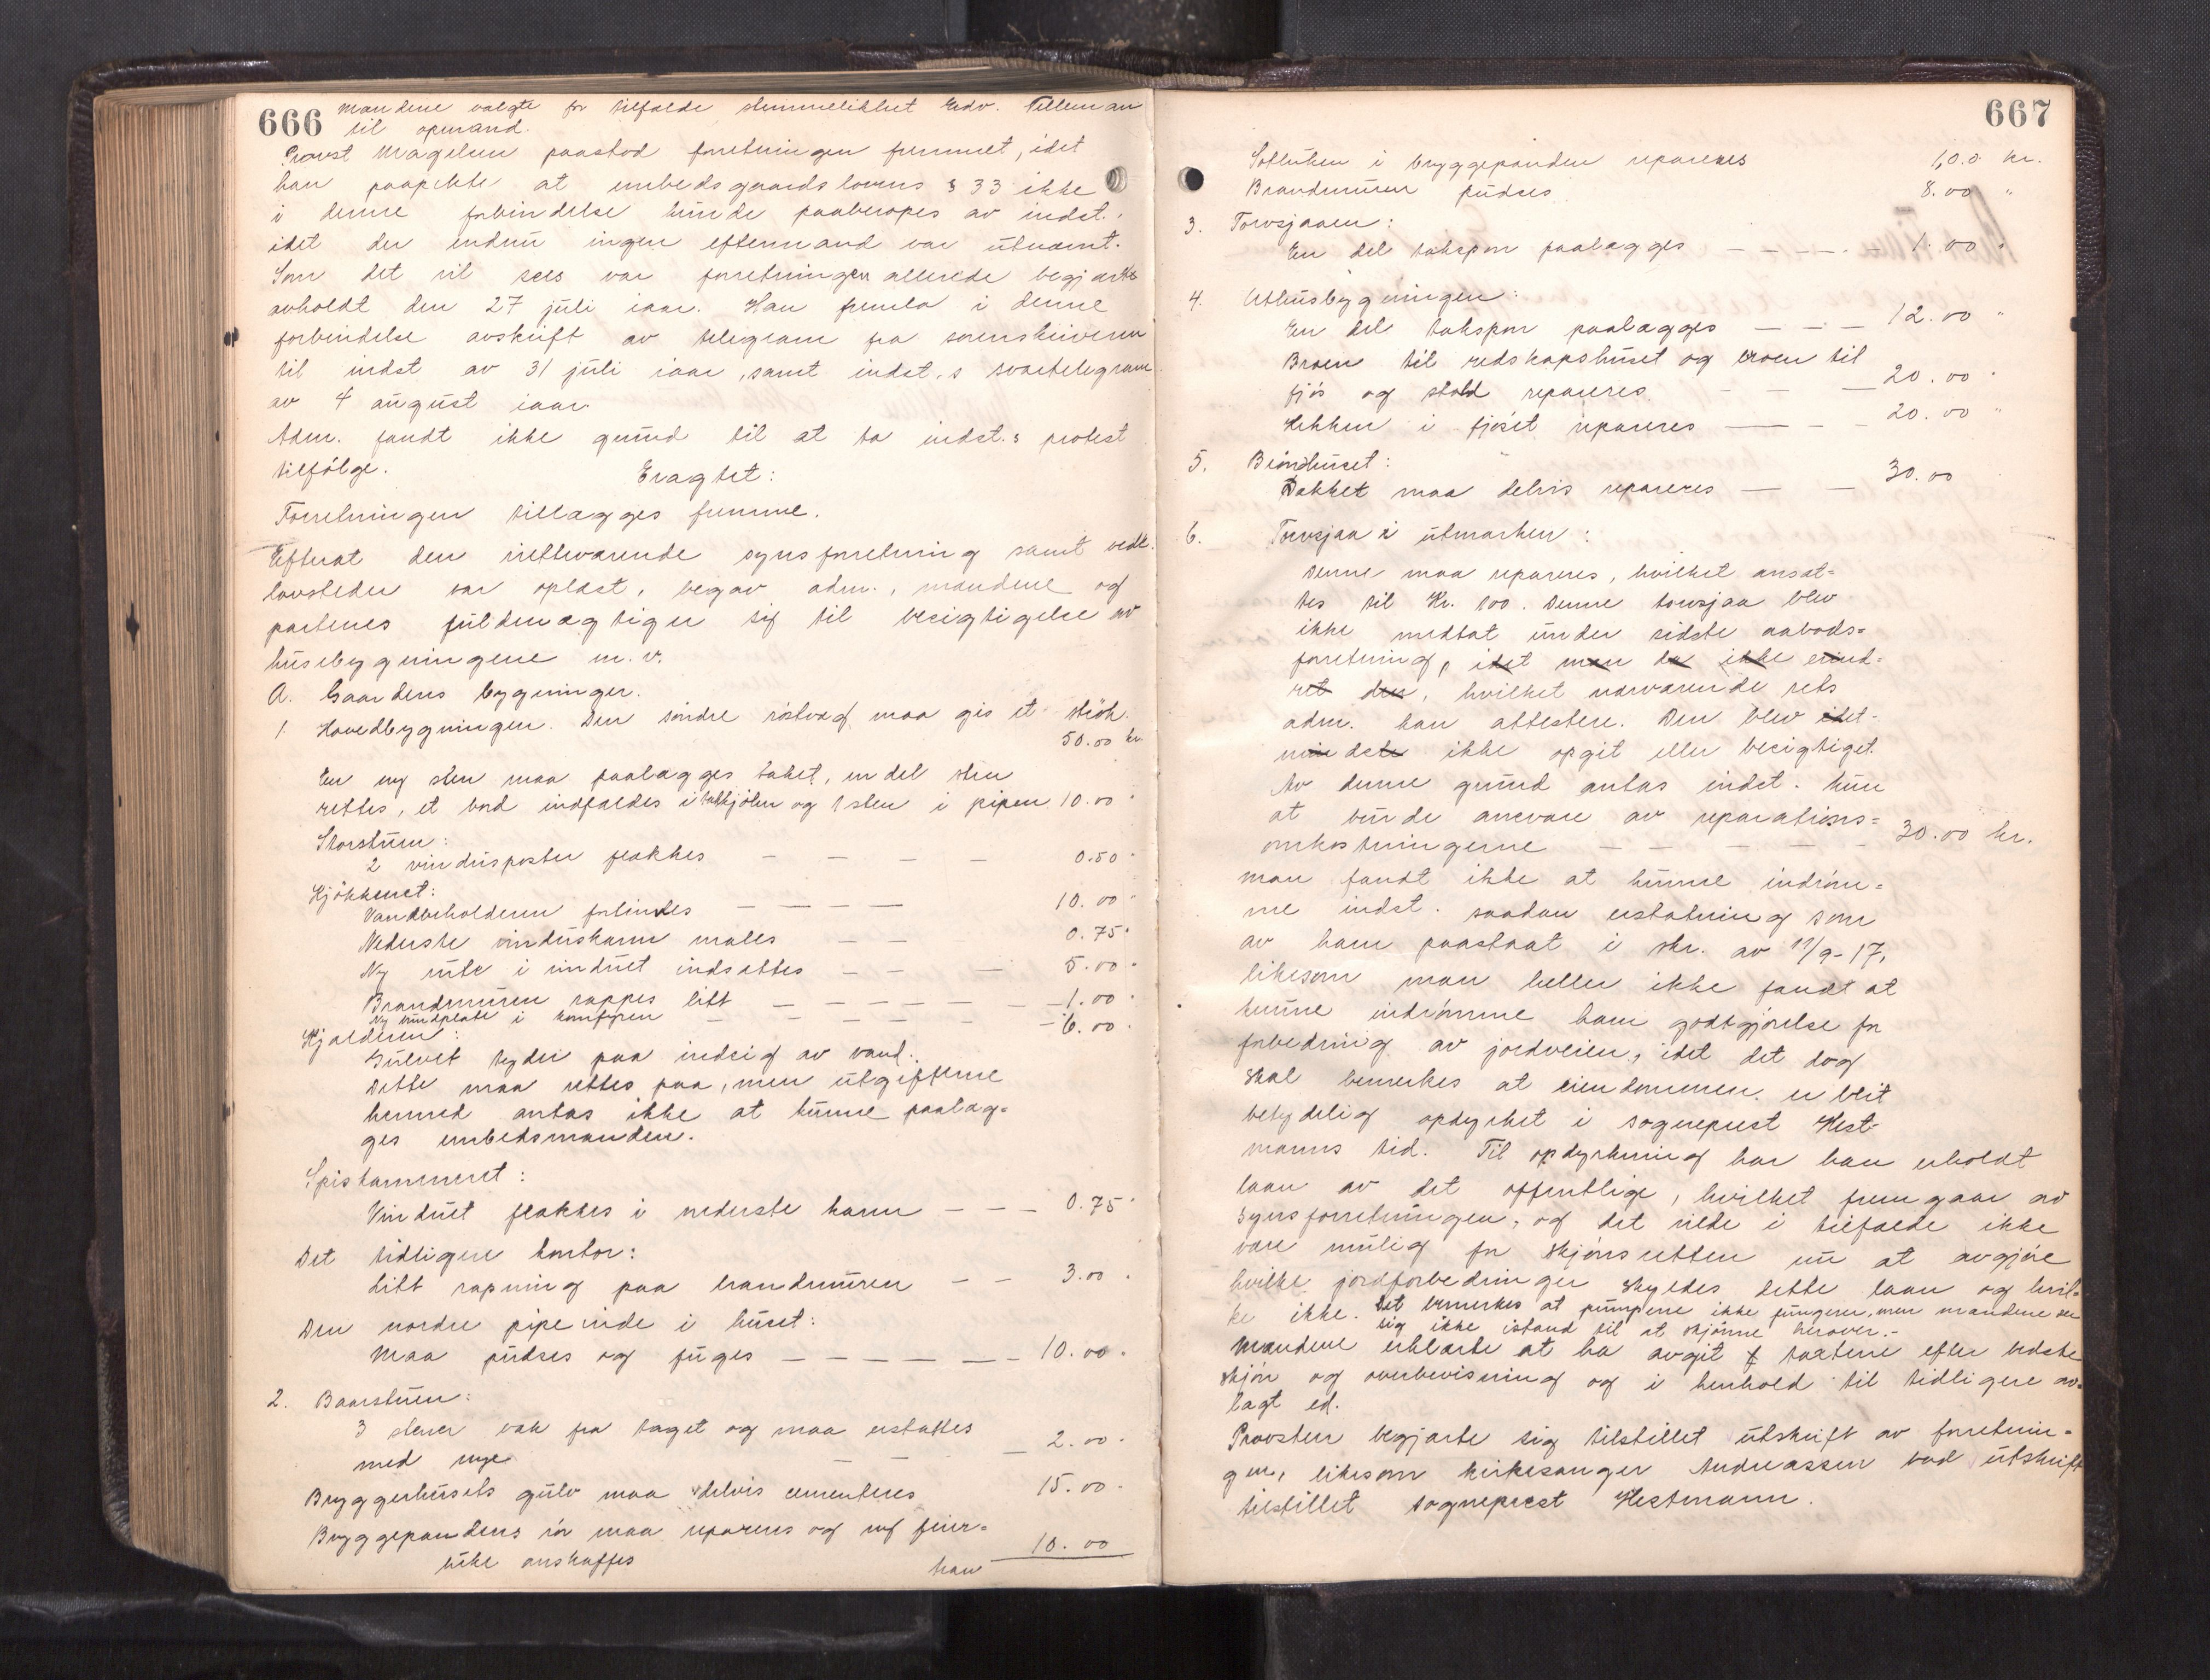 666 Mandene valgte for tilfælde stemmelikhet Edv. Telleman
til opmand.
Provst Magelsen paastod forretningen fremmet, idet
han paapekte at embedsgaardslovens § 33 ikke
i denne forbindelse kunde paaberopes av indst.,
idet der endnu ingen eftermand var utnævnt.
Som det vil sees var forretningen allerede begjært
avholdt den 27 juli iaar. Han fremla i denne
forbindelse avskrift av telegram fra sorenskriveren
til indst av 31 juli iaar, samt indst.s svartelegram
av 4 august iaar.
Adm. fandt ikke grund til at ta indst.s protest
tilfølge.
Eragtet:
Forretningen tillægges fremme.
Efterat den nettværende synsforretning samt vedk.
lovsteder var oplæst, begav adm., mandene og
partenes fuldmægtiger sig til besigtigelse av
husebygningene m.v.
A. Gaardens bygninger.
1. Hovedbygningen. Den søndre røstvæg maa gis et strøk.
50.00 kr.
En ny sten maa paalægges taket, en del sten
rettes, et bord indfældes i takkjølen og 1 sten i pipen 10.00 "
Storstuen:
2 vindusposter flækkes — — — — 0.50 "
Kjøkkenet:
Vandbeholderen fortindes — — — — 10.00 "
Nederste vinduskarm males — — 0.75 "
Ny rute i vinduet indsættes — — — 5.00 "
Brandmuren rappes litt — — — — — — 1.00 "
Ny bundplate i komfyren — — — — — 6.00 "
Kjælderen:
Gulvet tyder paa indsig av vand.
Dette maa rettes paa, men utgifterne
hermed antas ikke at kunne paalæg-
ges embedsmanden.
Spiskammeret:
Vinduet flækkes i nederste karm — — — 0.75 "
Det tidligere kontor:
Litt rapning paa brandmuren — — 3.00 "
Den nordre pipe inde i huset:
Maa pudses og fuges — — — — — — 10.00 "
2. Baarstuen:
3 stener væk fra taget og maa erstattes
med nye — — — 2.00 "
Bryggerhusets gulv maa delvis cementeres 15.00 "
Bryggepandens rør maa repareres og ny feier-
luke anskaffes 10.00
667
Sotluken i bryggepanden repareres 1,00 kr.
Brandmuren pudses 8.00 "
3. Torvsjaaen:
En del takspon paalægges — — — — — 1.00 "
4. Uthusbygningen:
En del takspon paalægges — — — 12.00 "
Broen til redskapshuset og broen til
fjøs og stald repareres — — — 20.00 "
Hekken i fjøset repareres — — — 20.00 "
5. Brøndhuset:
Takket maa delvis repareres — — 30.00
6. Torvsjaa i utmarken:
Denne maa repareres, hvilket ansæt-
tes til Kr. 100. Denne torvsjaa blev
ikke medtat under sidste aabods-
forretning, idet man da ikke erind-
ret den, hvilket nærværende rets
adm. kan attestere. Den blev idet-
mindste ikke opgit eller besigtiget.
Av denne grund antas indst. kun
at burde ansvare av reparations-
omkostningerne — — — — — 30.00 kr.
Man fandt ikke at kunne indrøm-
me indst. saadan erstatning som
av ham paastaat i skr. av 11/9-17,
likesom man heller ikke fandt at
kunne indrømme ham godtgjørelse for
forbedring av jordveien, idet det dog
skal bemerkes at eiendommen er blit
betydelig opdyrket i sogneprest Hest-
manns tid. Til opdyrkning har han erholdt
laan av det offentlige, hvilket fremgaar av
synsforretningen, og det vilde i tilfælde ikke
være mulig for skjønsretten nu at avgjøre
hvilke jordforbedringer skyldes dette laan og hvil-
ke ikke. Det bemerkes at pumpene ikke fungerer, men mandene ser
sig ikke istand til at skjønne herover.-
Mandene erklærte at ha avgit taxterne efter bedste
skjøn og overbevisning og i henhold til tidligere av-
lagt ed.
Provsten begjærte sig tilstillet utskrift av forretnin-
gen, likesom kirkesanger Andreassen bad utskrift
tilstillet sogneprest Hestmann.